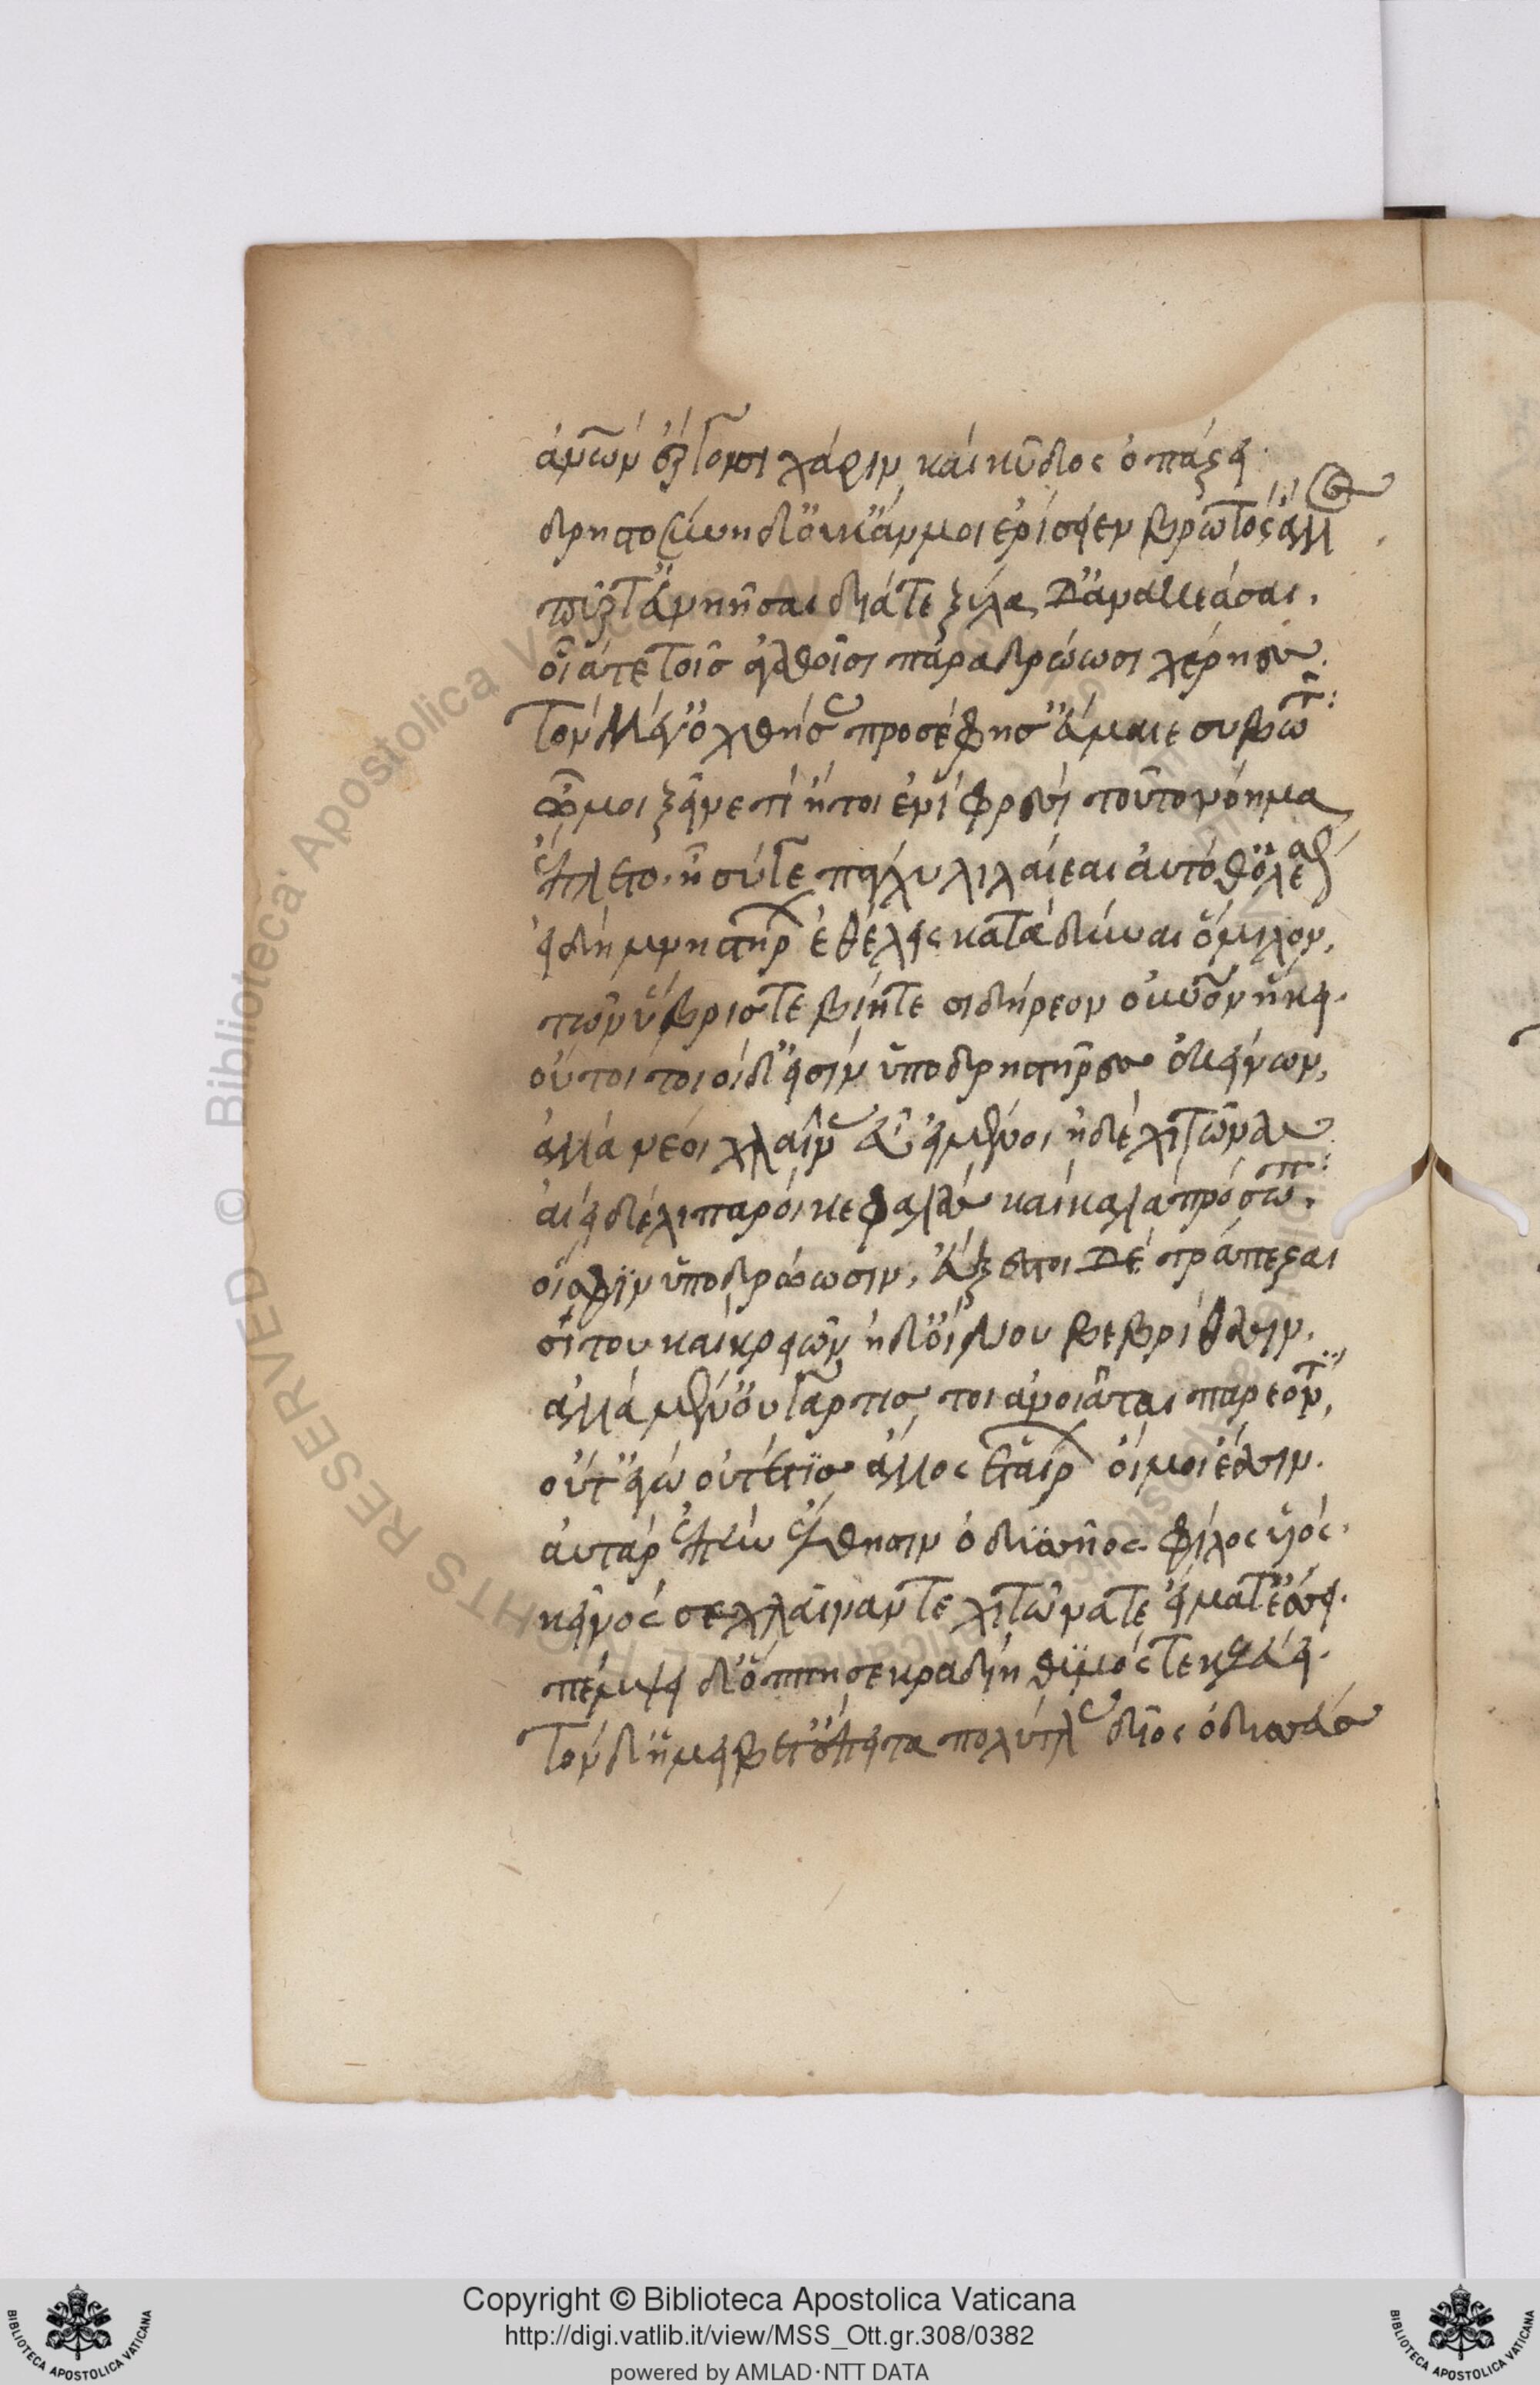 ἀνων ἔργοισι χάριν καὶ κῦδος ὀπάζει.
δρηστοσύνη δ' οὐκ ἄν μοι ἐρίσειεν βρωτὸς ἄλλος
πῦρ τ' ἂν νηῆσαι διά τε ξύλα δ' ἄνα κεάσαι.
οἷά τε τοῖσ ἀγαθοῖσι παραδρώωσι χέρηεσ.
Τὸν μέγ' ὀχθήσας προσέφησ εὔμαιε συβῶτ:
ὤμοι ξεῖνε τί ἤτοι ἐνὶ φρεσὶ τοῦτο νόημα
ἔπλετο. ἢ σύ γε πάγχυ λιλαίεαι αὐτόθ' ὀλέσθαι
εἰ δὴ μνηστήρων ἐθέλεις καταδῦναι ὅμιλον,
τῶν ὕβρις τε βίη τε σιδήρεον οὐρανὸν ἥκει.
οὔτοι τοι οἵδ' εἰσὶν ὑποδρηστῆρεσ ἐκείνων,
ἀλλὰ νέοι χλαίνας εὖ εἱμένοι ἠδὲ χιτῶνας
αἰεὶ δὲ λιπαροὶ κεφαλὰς καὶ καλὰ πρόσωπ:
οἵ σφιν ὑποδρώωσιν. ἐΰξεστοι δὲ τράπεζαι
σίτου καὶ κρειῶν ἠδ' οἴνου βεβρίθασιν.
ἀλλὰ μέν' οὐ γάρ τισ τοι ἀνοιᾶται παρεόντι,
οὔτ' ἐγὼ οὔτέ τισ ἄλλος ἑταίρων οἵ μοι ἔασιν.
αὐτὰρ ἐπὴν ἔλθησιν ὀδυσσῆος φίλος υἱός.
κεῖνός σε χλαῖνάν τε χιτῶνα τε εἵματ' ἕσσει.
πέμψει δ' ὅππη σε κραδίη θυμός τε κελεύει.
Τὸν δ' ἠμείβετ' ἔπειτα πολύτλας δῖος ὀδυσσεύσ
Copyright © Biblioteca Apostolica Vaticana
http://digi.vatlib.it/view/MSS_Ott.gr.308/0382
powered by AMLAD·NTT DATA